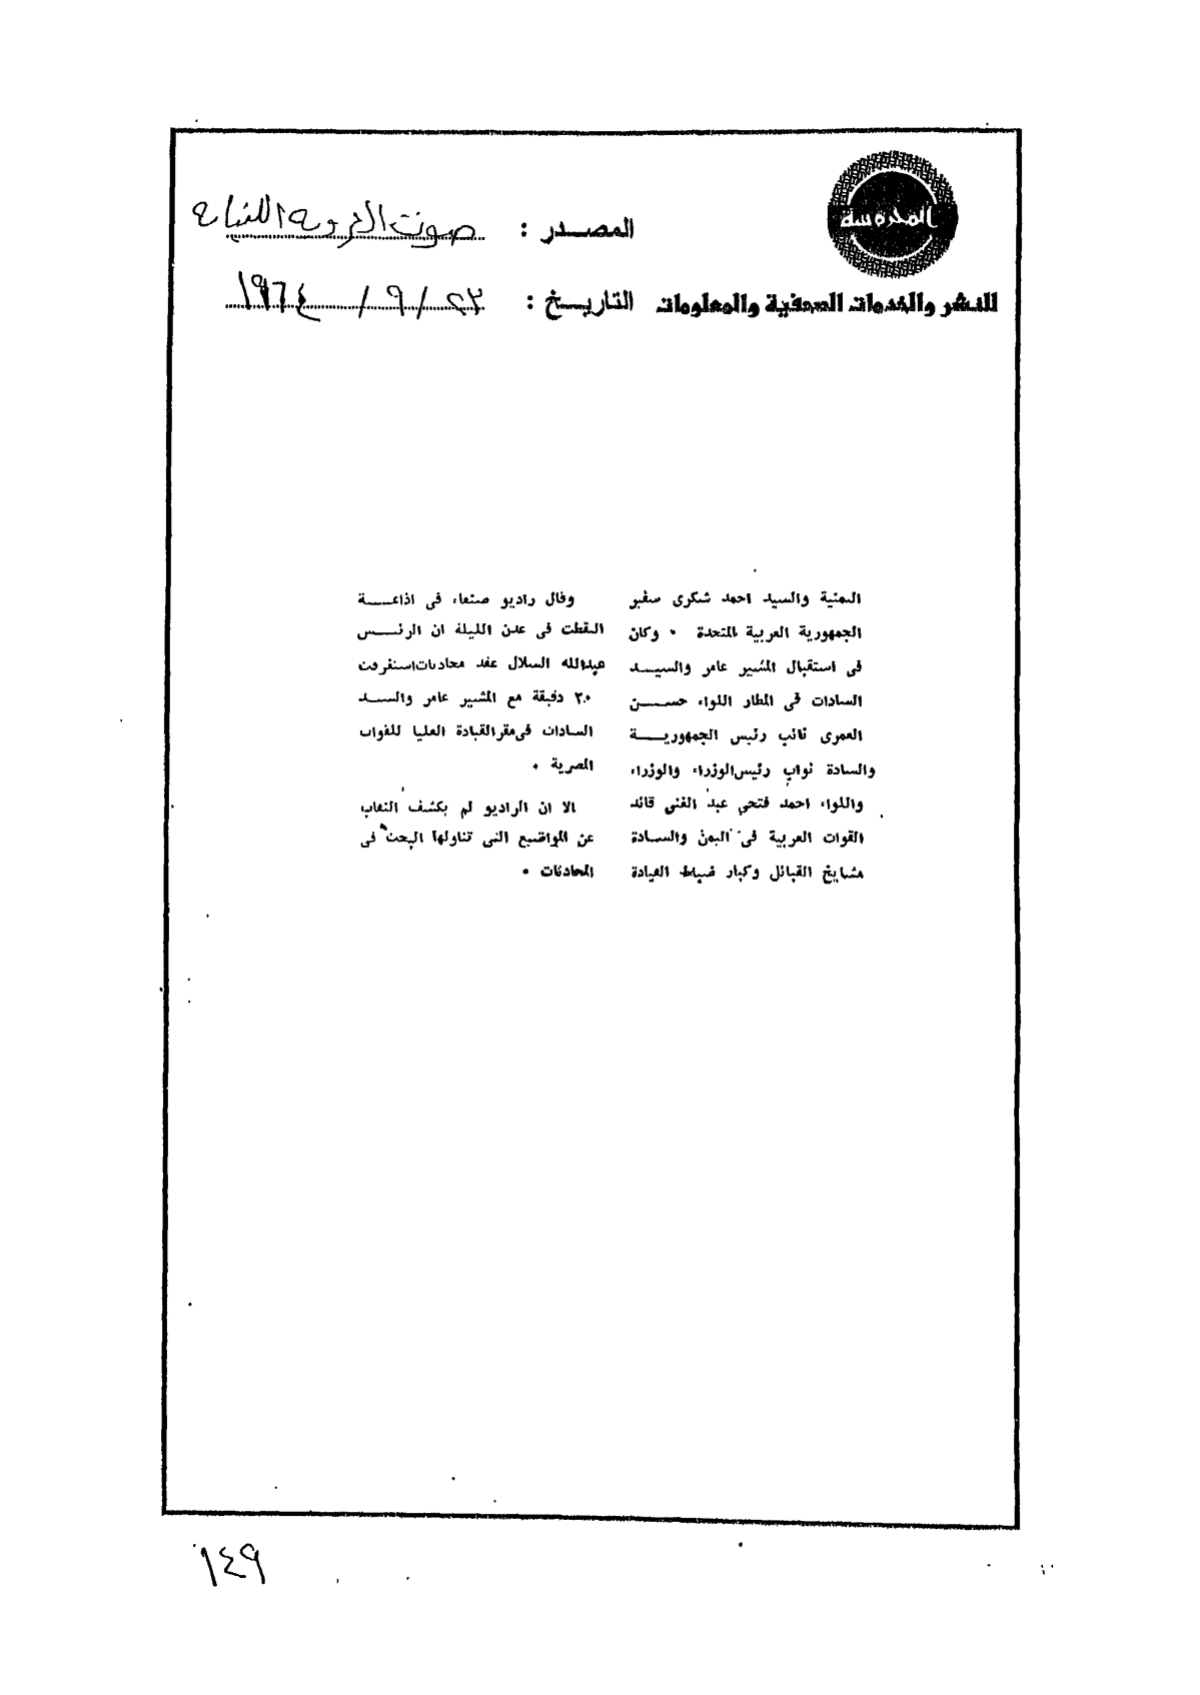 المحروسة
للنشر والخدمات الصحفية والمعلومات
المصدر : صوت العروبة اللبنانية
التاريخ : ٢٣ / ٩ / ١٩٦٤
اليمنية والسيد احمد شكرى سفير
الجمهورية العربية المتحدة ٠ وكان
فى استقبال المشير عامر والسيد
السادات فى المطار اللواء حسن
العمرى نائب رئيس الجمهورية
والسادة نواب رئيس الوزراء والوزراء
واللواء احمد فتحي عبد الغنى قائد
القوات العربية فى اليمن والسادة
مشايخ القبائل وكبار ضباط القيادة
وقال راديو صنعاء فى اذاعة
التقطت فى عدن الليلة ان الرئيس
عبدالله السلال عقد محادثات استغرقت
٢٠ دقيقة مع المشير عامر والسيد
السادات فى مقر القيادة العليا للقوات
المصرية ٠
الا ان الراديو لم يكشف النقاب
عن المواضيع التى تناولها البحث فى
المحادثات ٠
١٤٩